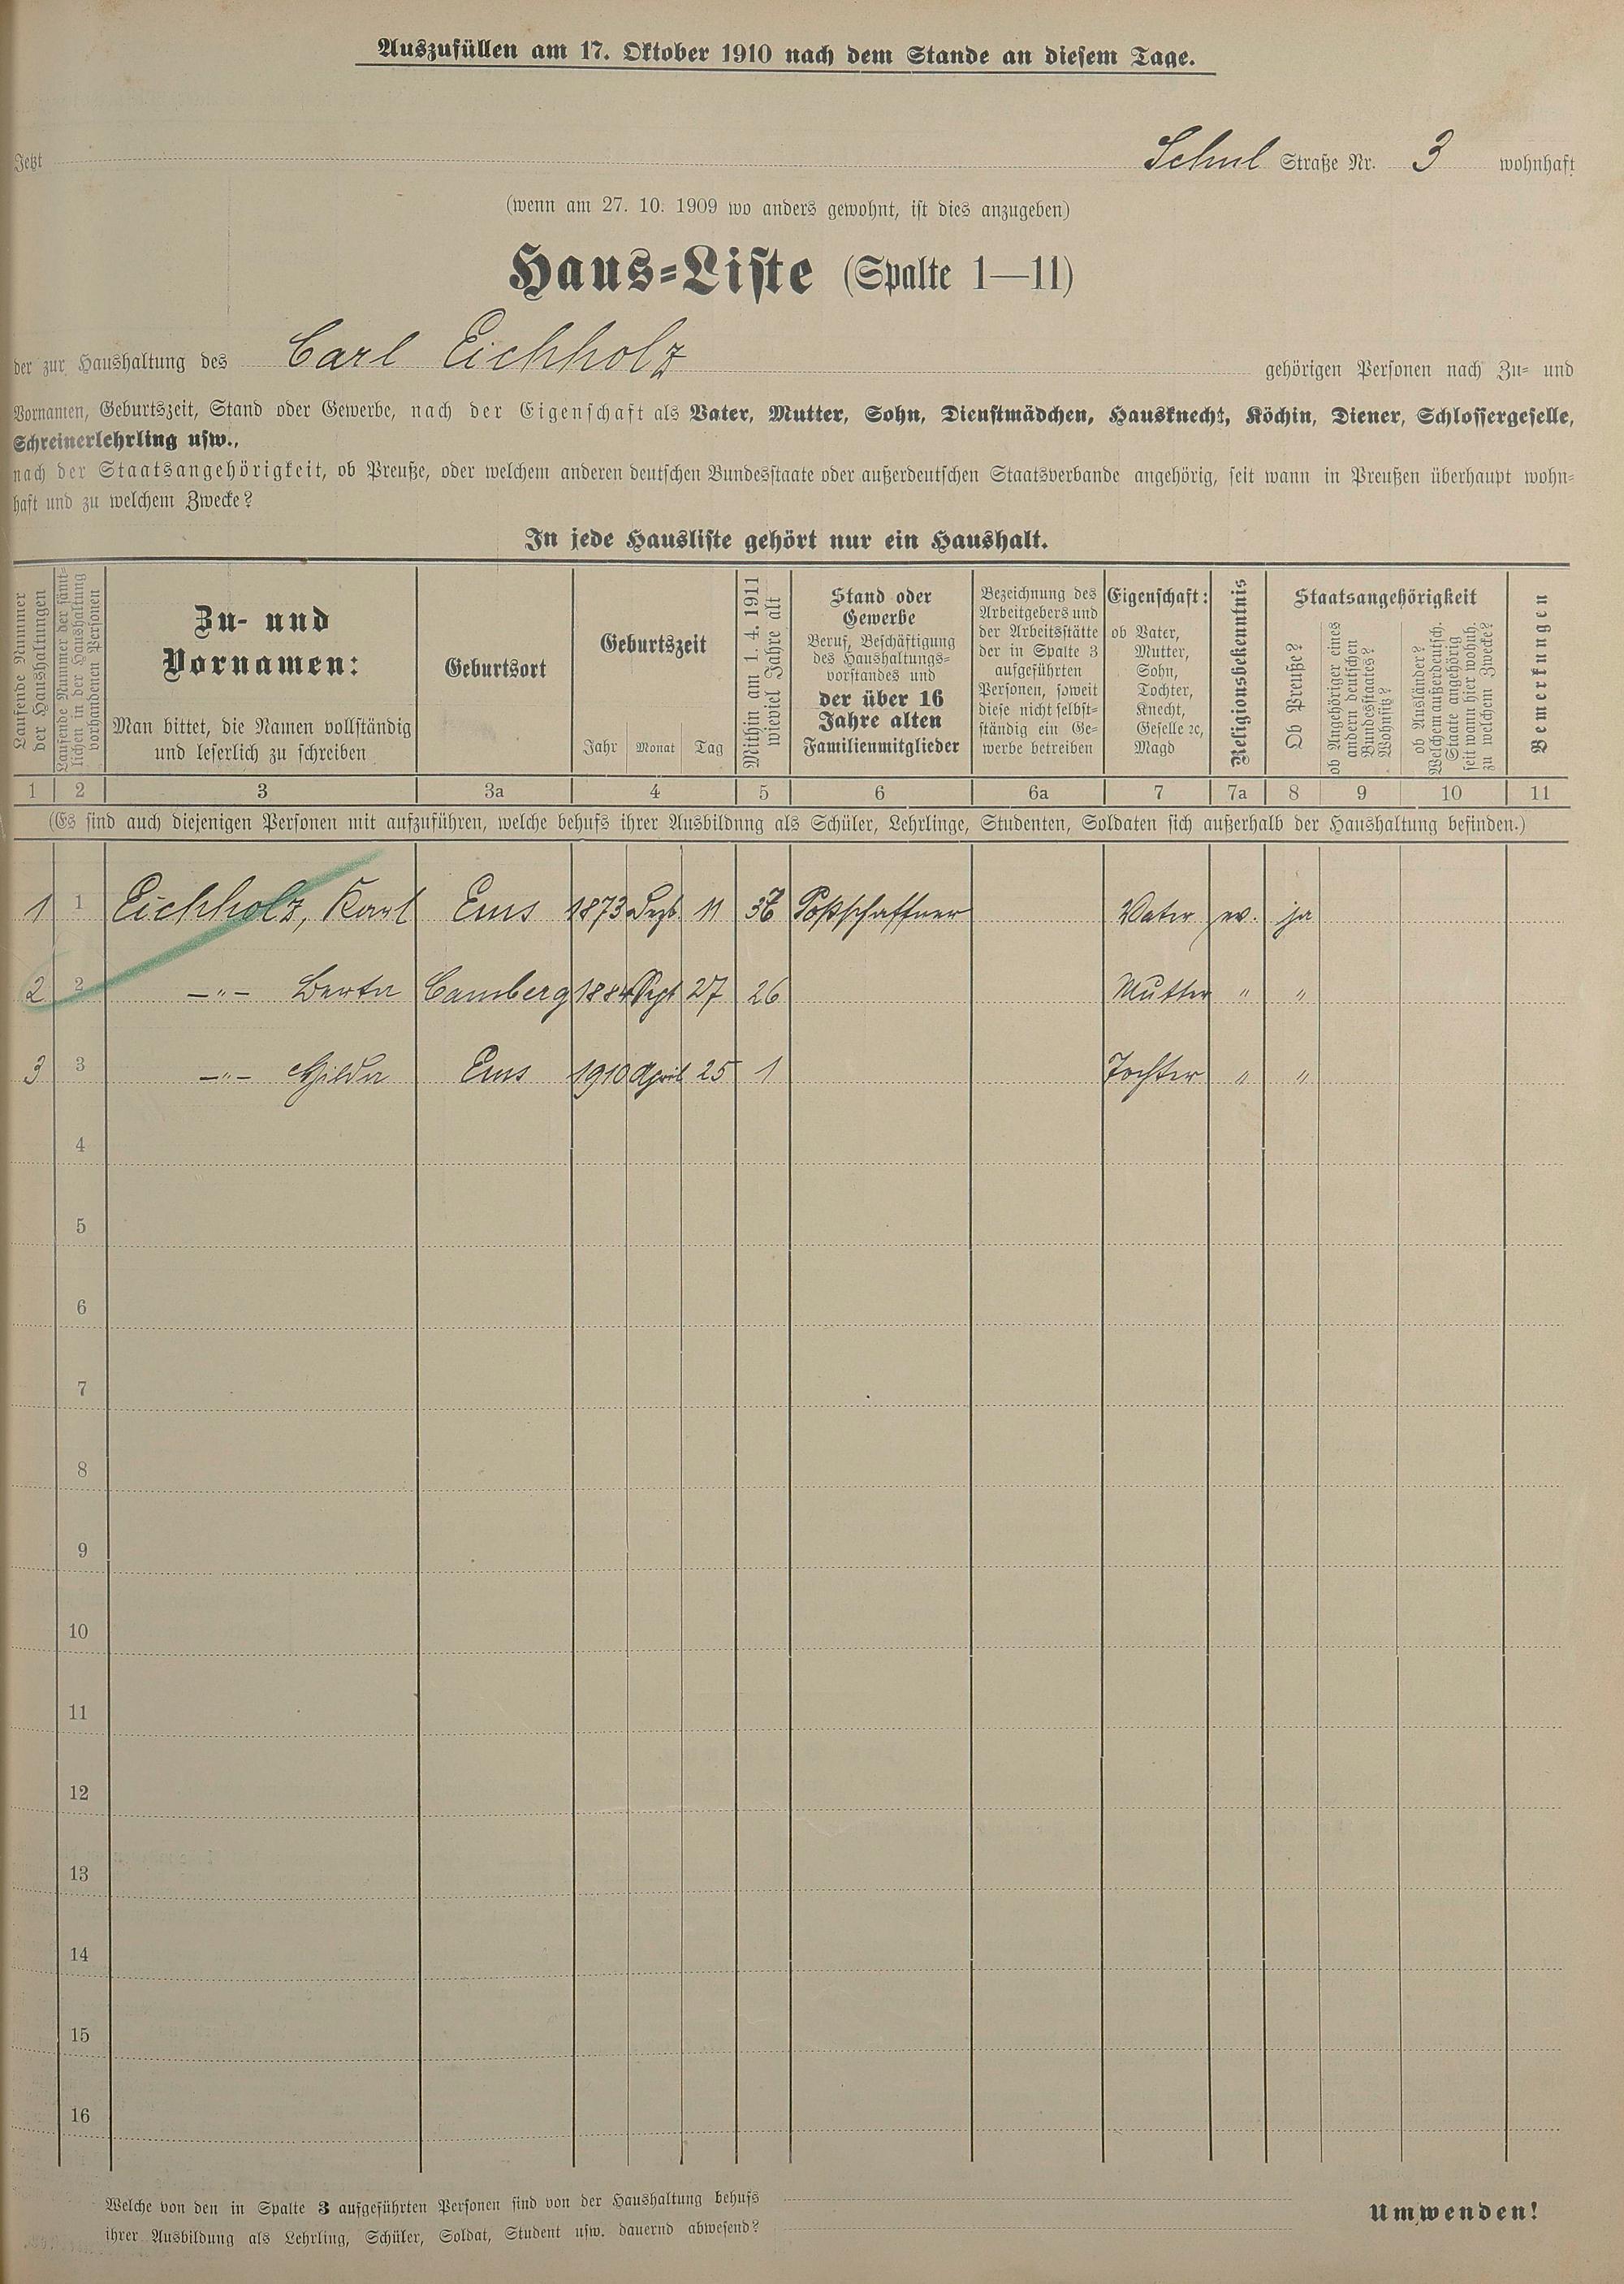 Auszufüllen am 17. Oktober 1910 nach dem Stande an diesem Tage.
Jetzt Schul Straße Nr. 3 wohnhaft
(wenn am 27. 10. 1909 wo anders gewohnt, ist dies anzugeben)
Haus-Liste (Spalte 1—11)
der zur Haushaltung des Carl Eichholz gehörigen Personen nach Zu- und
Vornamen, Geburtszeit, Stand oder Gewerbe, nach der Eigenschaft als Vater, Mutter, Sohn, Dienstmädchen, Hausknecht, Köchin, Diener, Schlossergeselle,
Schreinerlehrling usw.,
nach der Staatsangehörigkeit, ob Preuße, oder welchem anderen deutschen Bundesstaate oder außerdeutschen Staatsverbande angehörig, seit wann in Preußen überhaupt wohn-
haft und zu welchem Zwecke?
In jede Hausliste gehört nur ein Haushalt.
Laufende Nummer
der Haushaltungen
Laufende Nummer der sämt-
lichen in der Haushaltung
vorhandenen Personen
Zu- und
Vornamen:
Man bittet, die Namen vollständig
und leserlich zu schreiben
Geburtsort
Geburtszeit
Jahr Monat Tag
Mithin am 1. 4. 1911
wieviel Jahre alt
Stand oder
Gewerbe
Beruf, Beschäftigung
des Haushaltungs-
vorstandes und
der über 16
Jahre alten
Familienmitglieder
Bezeichnung des
Arbeitgebers und
der Arbeitsstätte
der in Spalte 3
aufgeführten
Personen, soweit
diese nicht selbst-
ständig ein Ge-
werbe betreiben
Eigenschaft:
ob Vater,
Mutter,
Sohn,
Tochter,
Knecht,
Geselle ꝛc,
Magd
Religionsbekenntnis
Staatsangehörigkeit
Ob Preuße?
ob Angehöriger eines
andern deutschen
Bundesstaates?
Wohnsitz?
ob Ausländer?
Welchem außerdeutsch.
Staate angehörig
seit wann hier wohnh.
zu welchem Zwecke?
Bemerkungen
1 2 3 3a 4 5 6 6a 7 7a 8 9 10 11
(Es sind auch diejenigen Personen mit aufzuführen, welche behufs ihrer Ausbildung als Schüler, Lehrlinge, Studenten, Soldaten sich außerhalb der Haushaltung befinden.)
1 1 Eichholz, Karl Ems 1873 Sept. 11 Postschaffner Vater ev. ja
2 2 —"— Berta Camberg 1884 Sept 27 26 Mutter " "
3 3 —"— Hilda Ems 1910 April 25 1 Tochter " "
4
5
6
7
8
9
10
11
12
13
14
15
16
Welche von den in Spalte 3 aufgeführten Personen sind von der Haushaltung behufs
ihrer Ausbildung als Lehrling, Schüler, Soldat, Student usw. dauernd abwesend?
Umwenden!